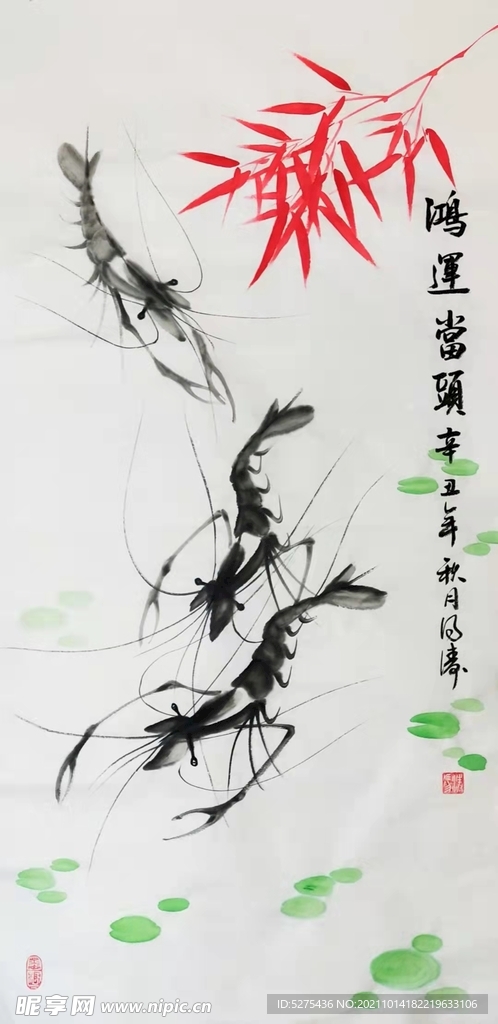 鴻運當頭
辛丑年秋月
昵享网 www.nipic.cn
ID:5275436 NO:20211014182219633106